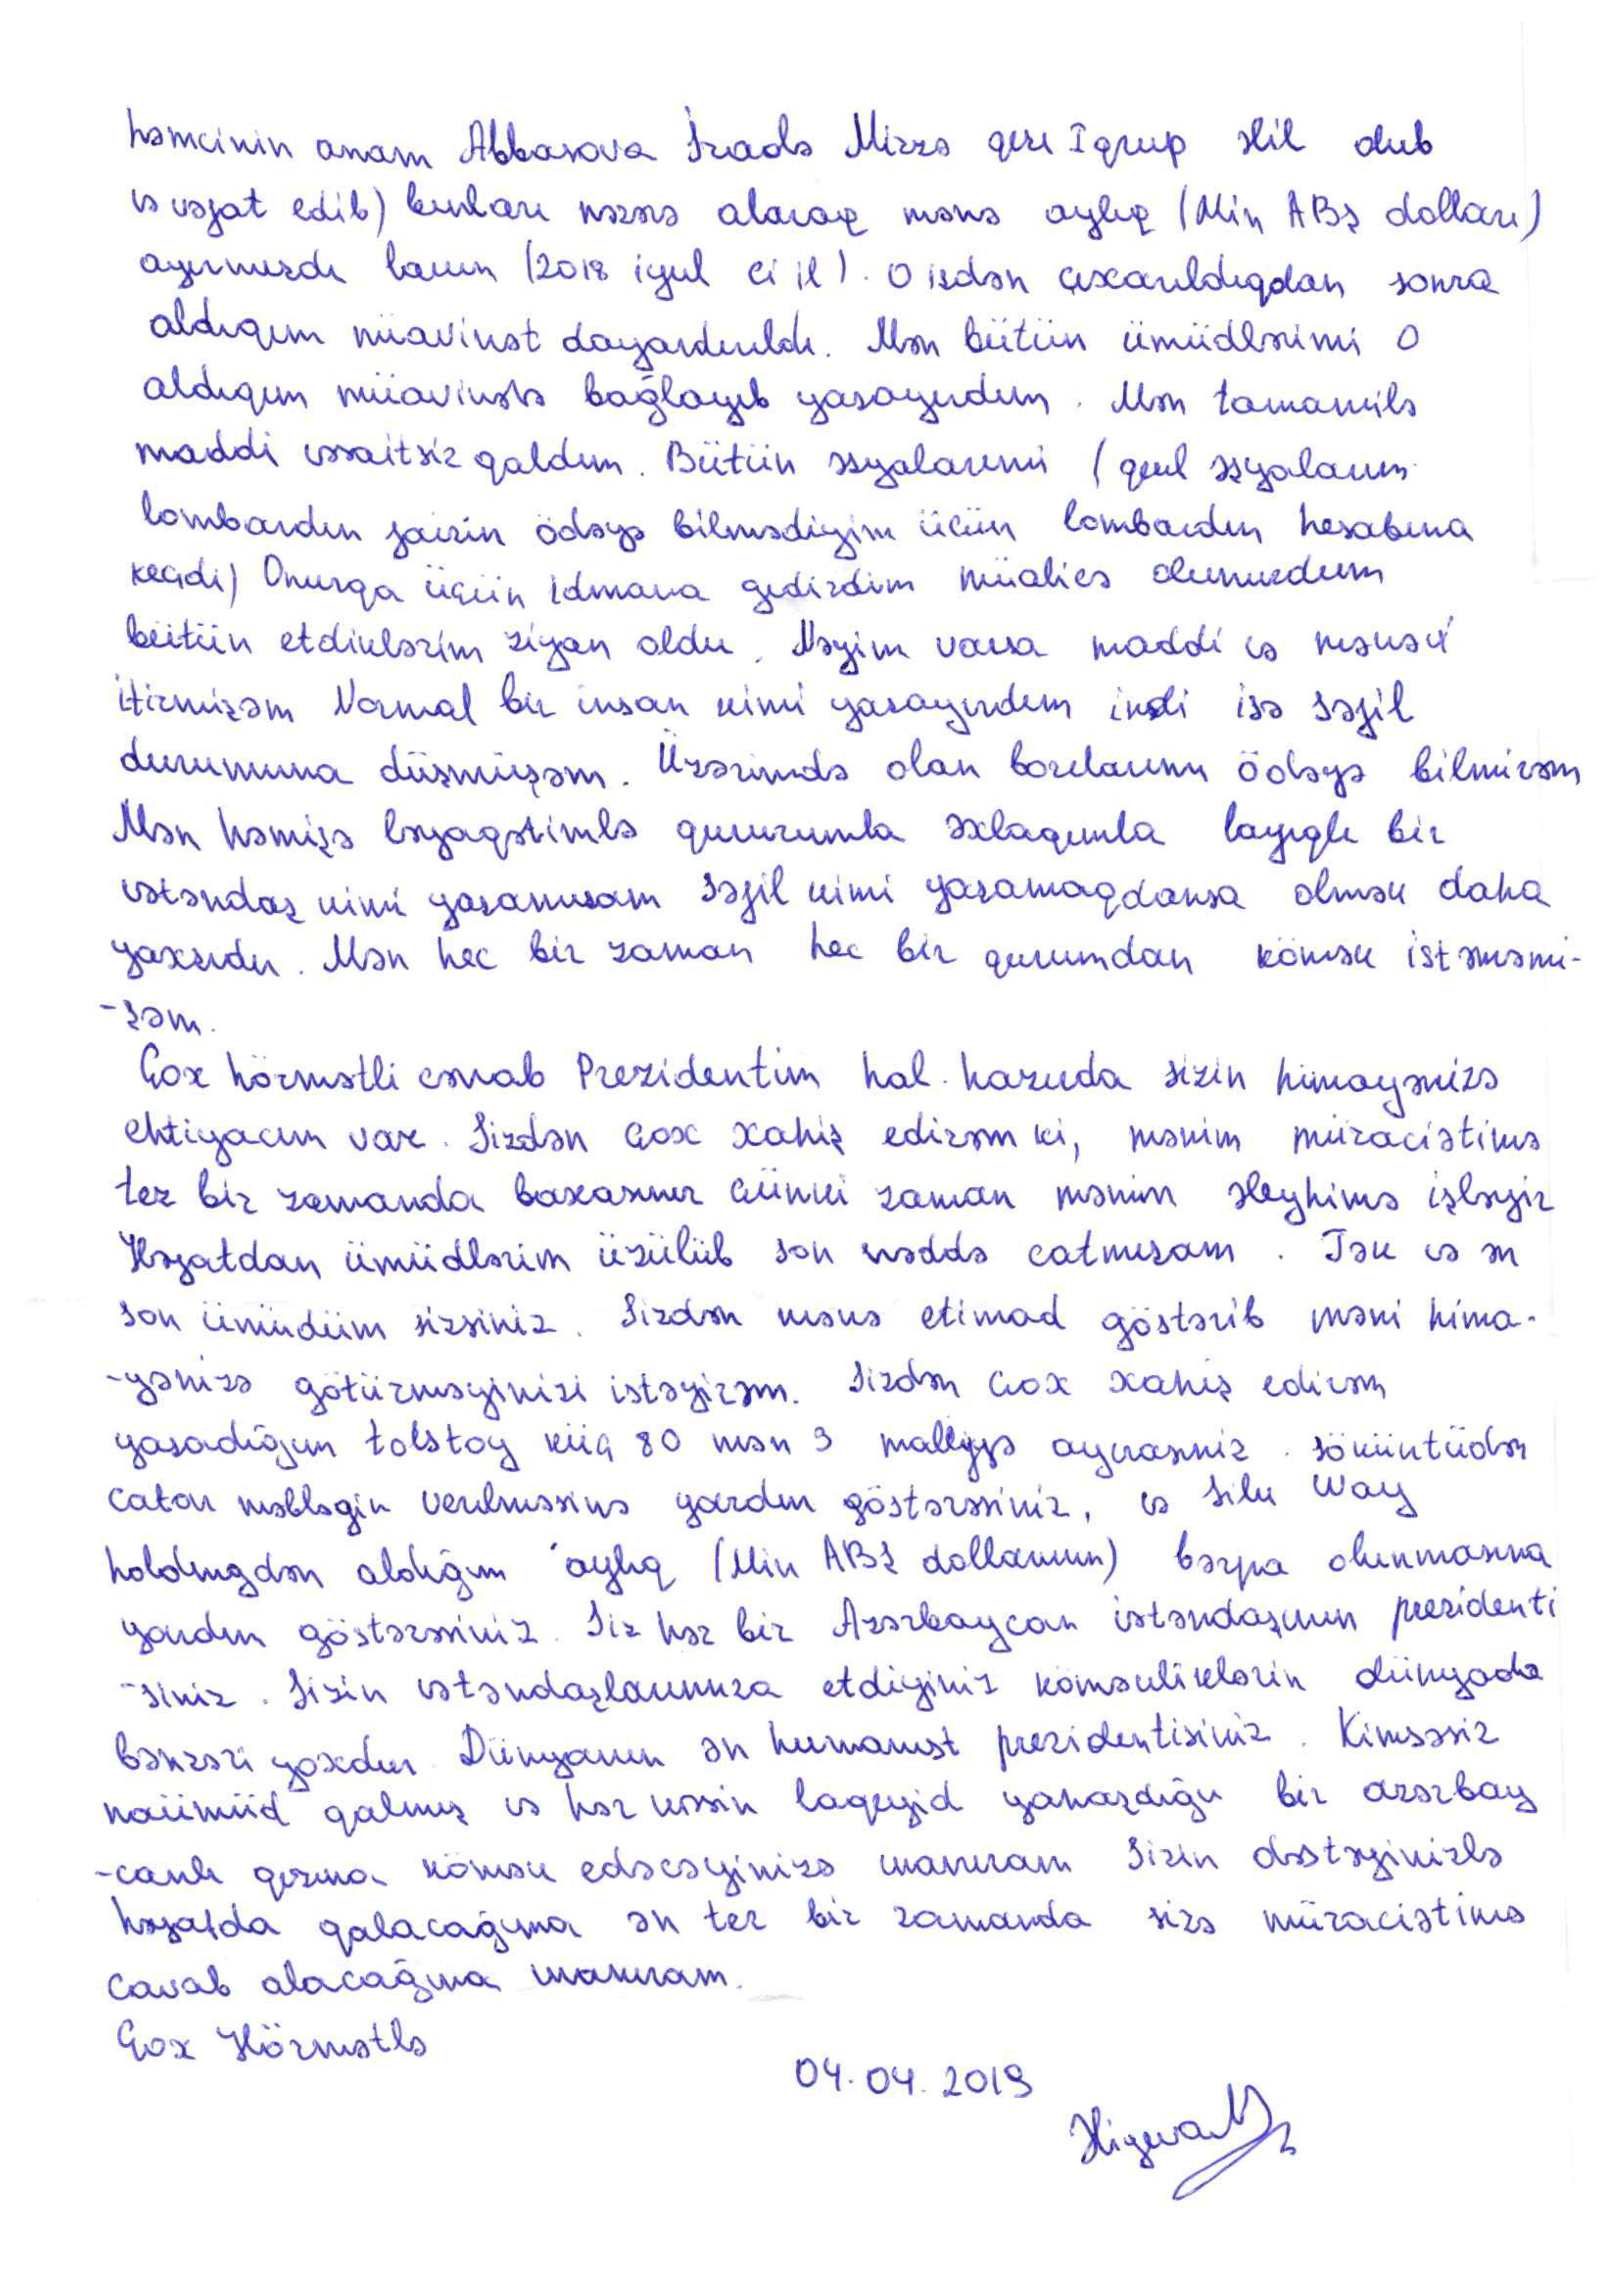 həmcinin anam Abbasova İradə Mirzə qızı I qrup əlil olub
və vəfat edib) bunları nəzərə alaraq mənə aylıq (Min ABŞ dolları)
ayırmışdı lakin (2018 iyul ci il). O isdən çıxarıldıqdan sonra
aldıqım müavinət dayandırıldı. Mən bütün ümüdlərimi O
aldıqım müavinətə bağlayıb yasayırdım. Mən tamamilə
maddi vəsaitsiz qaldım. Bütün əsyalarımi (qızıl əşyalarım
lombardın faizin ödəyə bilmədiyim ücün lombardın hesabına
kecdi) Onurqa üçün idmana gedirdim müalicə olunurdum
bütün etdiklərim ziyan oldu. Nəyim varsa maddi və mənəvi
itirmişəm Normal bir insan kimi yasayırdım indi isə səfil
durumuna düşmüşəm. Üzərimdə olan borclarımı ödəyə bilmirəm
Mən həmişə ləyaqətimlə qururumla əxlaqımla layıqlı bir
vətəndaş kimi yasamısam səfil kimi yasamaqdansa olmək daha
yaxsıdır. Mən hec bir zaman hec bir qurumdan kömək istəməmi-
-şəm.
Çox hörmətli cənab Prezidentim hal-hazırda sizin himayənizə
ehtiyacım var. Sizdən çox xahiş edirəm ki, mənim müraciətimə
tez bir zamanda baxasınız çünki zaman mənim əleyhimə işləyir
Həyatdan ümüdlərim üzülüb son həddə catmısam. Tək və ən
son ümüdüm sizsiniz. Sizdən mənə etimad göstərib məni hima-
-yənizə götürməyinizi istəyirəm. Sizdən çox xahiş edirəm
yasadığım tolstoy küç 80 mən 3 mallyyə ayırasınız. söküntüdən
catan məbləgin verilməsinə yardım göstərəsiniz, və Silk Way
holdingdən aldığım aylıq (Min ABŞ dollarının) bərpa olunmasına
yardım göstərəsiniz. Siz hər bir Azərbaycan vətəndaşının prezidenti
-siniz. Sizin vətəndaşlarınıza etdiyiniz köməkliklərin dünyada
bənzəri yoxdur. Dünyanın ən humanist prezidentisiniz. Kimsəsiz
naümüd qalmış və hər kəsin laqeyid yanaşdığı bir azərbay
-canlı qızına kömək edəcəyinizə inanıram Sizin dəstəyinizlə
həyatda qalacağıma ən tez bir zamanda sizə müraciətimə
cavab alacağıma inanıram.
Çox Hörmətlə
04.04.2019